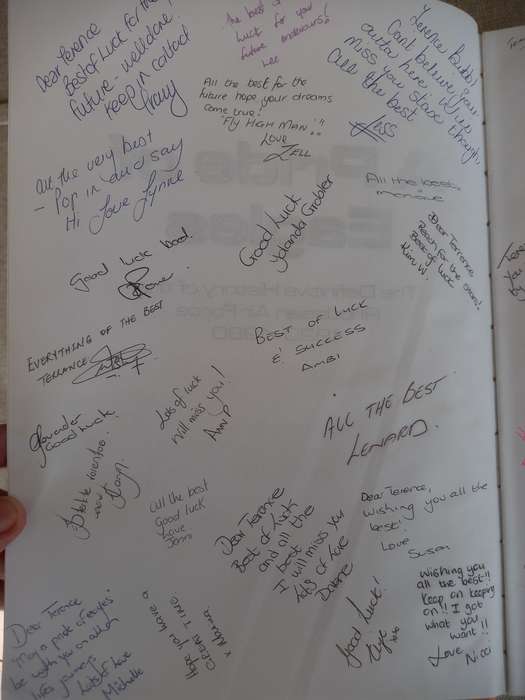 Dear Terence
Best of Luck for the
future - well done.
Keep in contact
The best of
luck for you
future endeavours!
Lee
Terence Bubby
Cant believe your
outta here. Will
miss you stax though.
All the best
All the best for the
future hope your dreams
come true!
FLY HIGH MAN!!
LOVE
ZELL
All the very best
- Pop in and say
Hi Love Lynne
Good Luck
Yolanda Grobler
All the best
Dear Terrence
Reach for the stars!
Best of luck
Kim W.
Good luck bod.
EVERYTHING OF THE BEST
TERRANCE
BEST OF LUCK
& SUCCESS
AMBI
Lots of luck
Will miss you!
Ann P
Good luck
ALL THE BEST
LENARD.
All the best
Good luck
Love
Dear Terence
Best of Luck
and all the
best
I will miss you
lots of love
Dear Terence,
Wishing you all the
best!
Love
Susan
Hope you have a
GREAT TIME
Good Luck!
Wishing you
all the best!!
Keep on keeping
on!! I got
what you
want!!
Love Nicci
Dear Terence
may a pride of eagles
be with you on all
lifes journeys
Lots of love
Michelle
Pride
Eagles
The Definitive History of the
Air Force